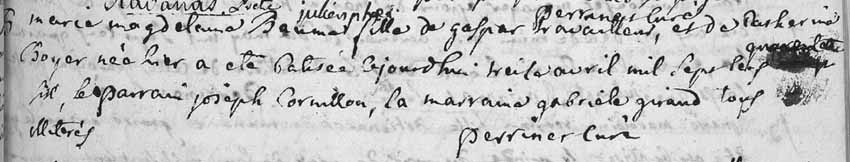 perrinet Curé
marie magdeleine Beaumet fille de gaspar travailleur, et de Catherine
Boyer née hier a eté batisée aujourdhui treise avril mil sept cens quarante
six, le parrain joseph Cornillon, la marraine gabriele girand tous
illiterés
perrinet Curé